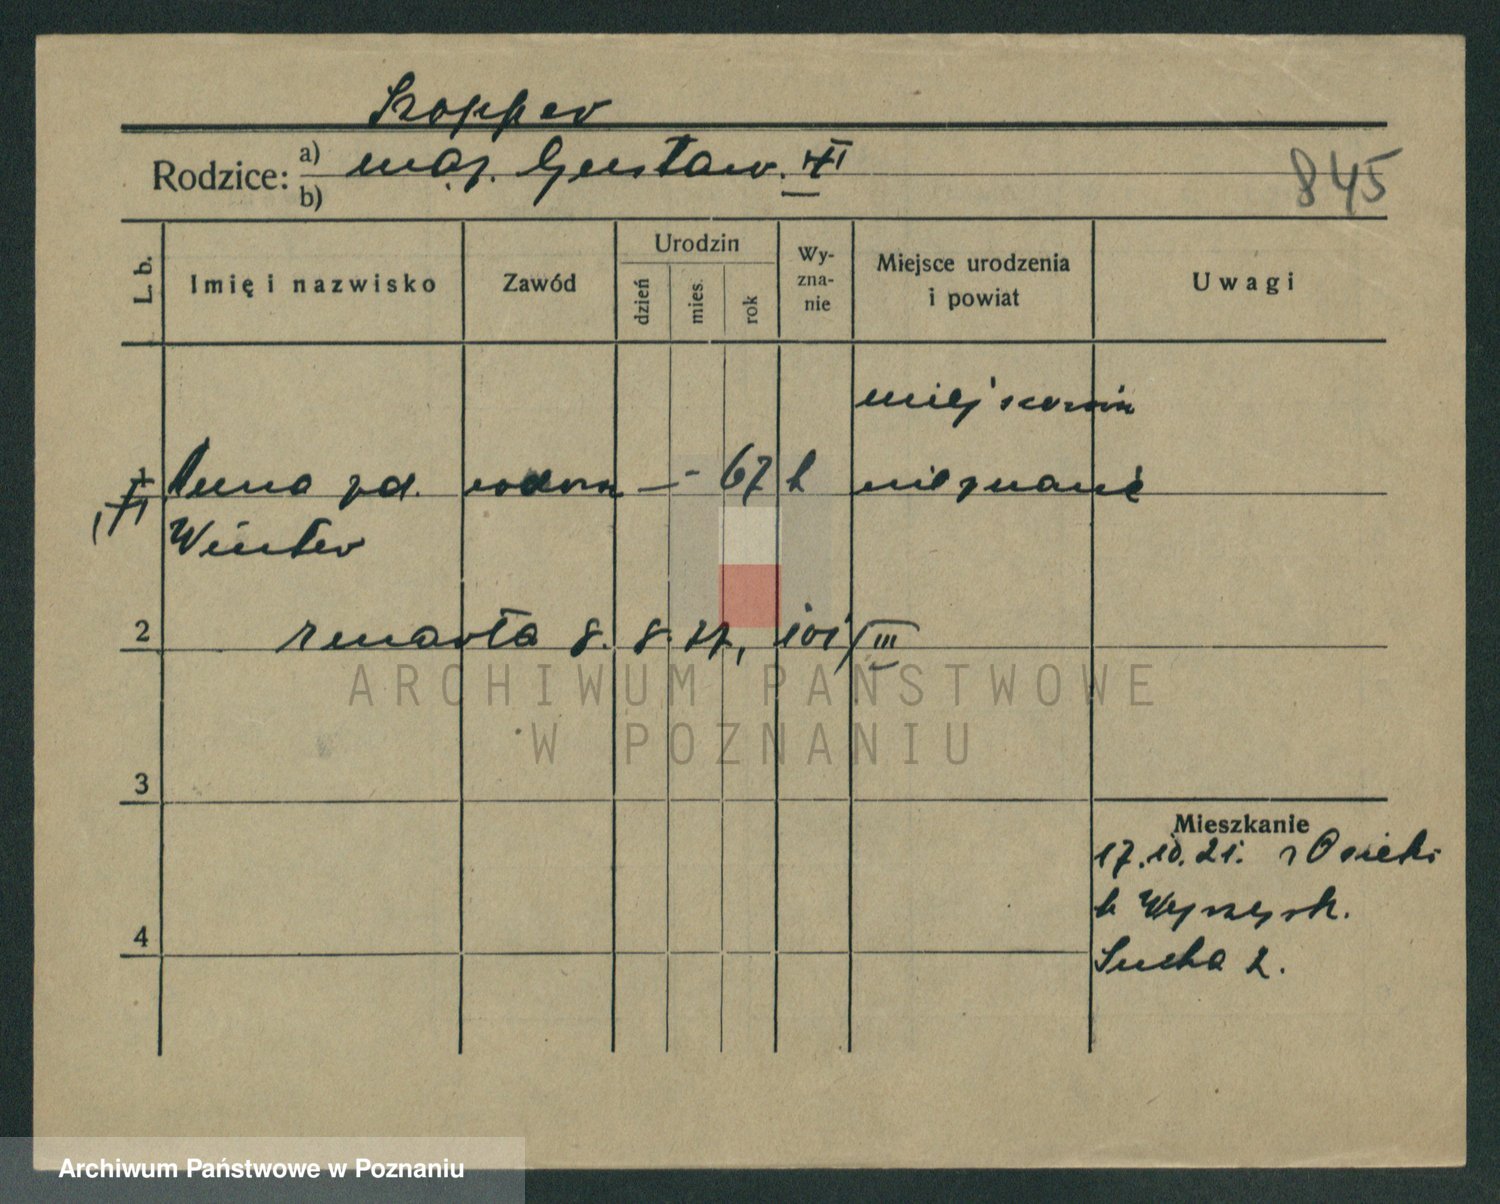 Szopper
Rodzice: a) mąż. Gustaw. VI
b)
845
L. b. Imię i nazwisko Zawód Urodzin dzień mies. rok Wyznanie Miejsce urodzenia i powiat Uwagi
miejscowość
1 Anna zd. wdowa — - 67 nieznane
Winter
2 zmarła 8. 8. 27, 101/III
ARCHIWUM PAŃSTWOWE
W POZNANIU
3
Mieszkanie
17.10.21. z Osieki
b Wyrzysk.
4
Sucha 2.
Archiwum Państwowe w Poznaniu